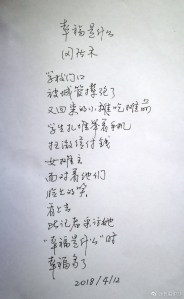 幸福是什么
闵治荣
学校门口
被城管撵跑了
又回来的小摊吃摊前
学生扎堆举着手机
扫微信付钱
女摊主
面对着他们
脸上的笑
看上去
比记者采访她
“幸福是什么”时
幸福多了
2018/4/12